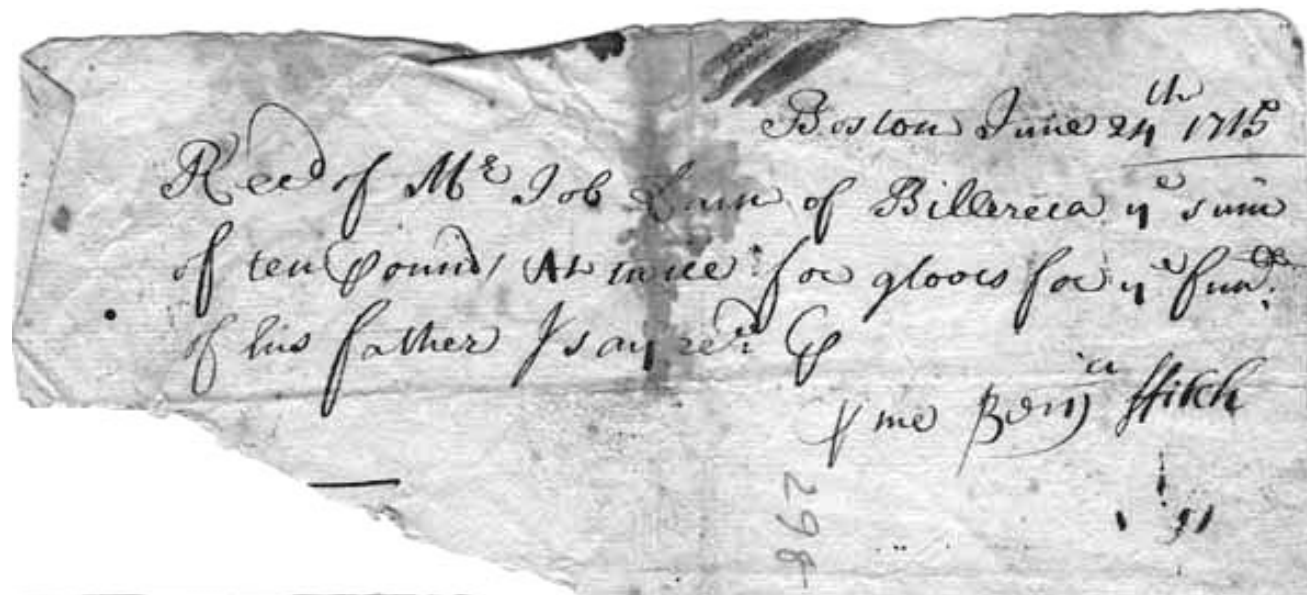 Boston June 24th 1715
Recd of Mr Job Lain of Billereca ye sum
of ten pound for gloves for ye fune
of his father I say recd
me Benja ffitch
298